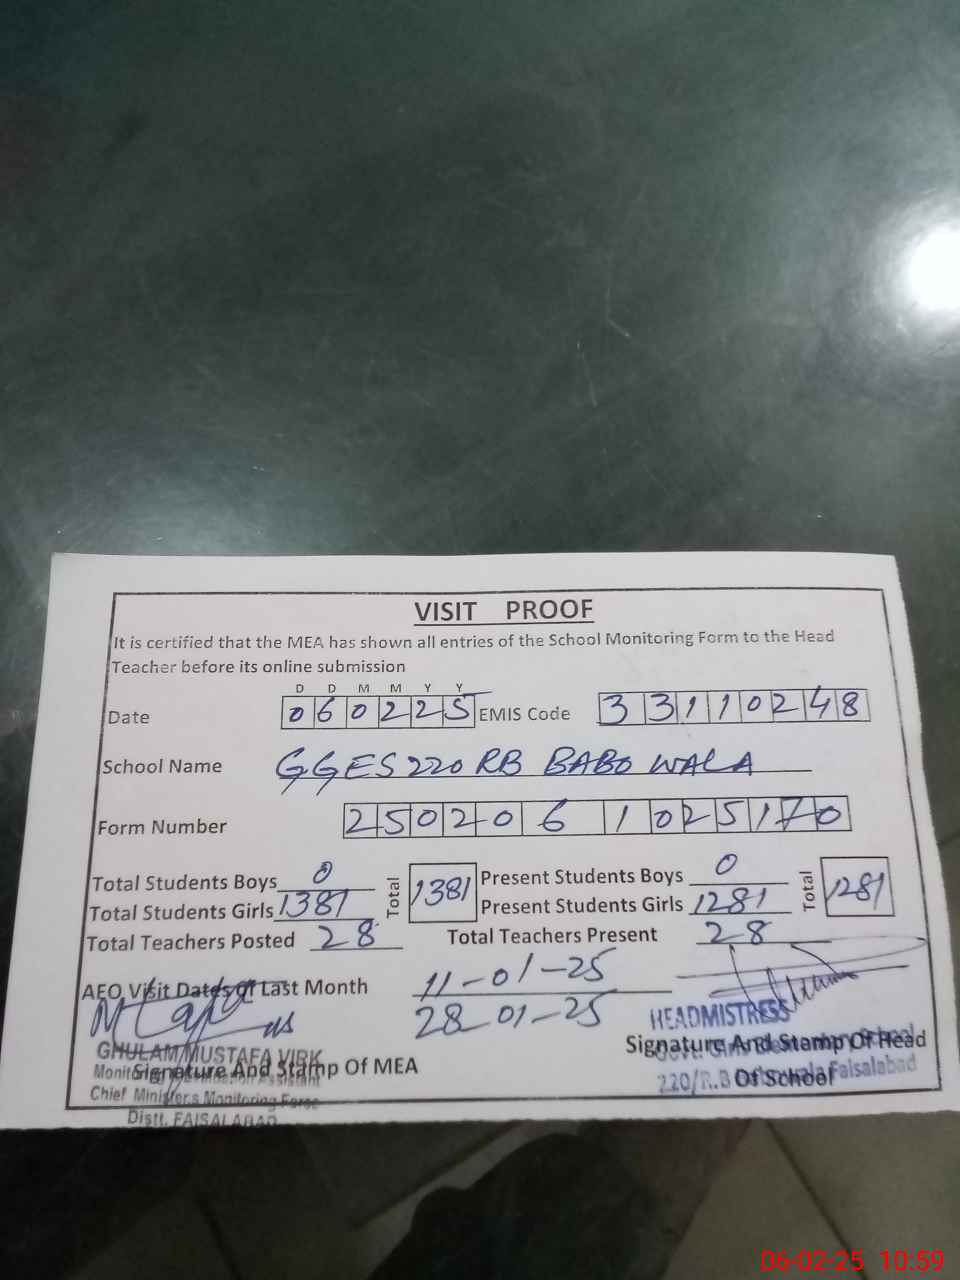 VISIT PROOF
It is certified that the MEA has shown all entries of the School Monitoring Form to the Head
Teacher before its online submission
D D M M Y Y
Date 060225 EMIS Code 33110248
School Name GGES 220 RB BABO WALA
Form Number 2502061025170
Total Students Boys 0 Total 1381 Present Students Boys 0 Total 1281
Total Students Girls 1381 Present Students Girls 1281
Total Teachers Posted 28 Total Teachers Present 28
AEO Visit Dates of Last Month 11-01-25
28-01-25
HEADMISTRESS
GHULAM MUSTAFA VIRK
Signature And Stamp Of MEA
Signature And Stamp Of Head
Of School
Govt. Girls School
220/R.B Faisalabad
Assistant
Chief Minister's Monitoring Force
Distt. FAISALABAD
06-02-25 10:59